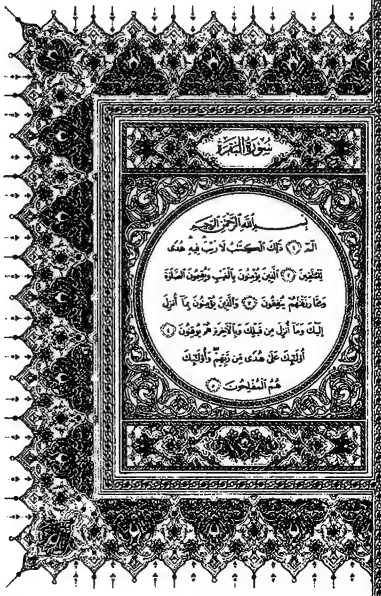 سُورَةُ الْبَقَرَةِ
بِسْمِ اللَّهِ الرَّحْمَٰنِ الرَّحِيمِ
الٓمٓ ﴿١﴾ ذَٰلِكَ الْكِتَٰبُ لَا رَيْبَ فِيهِ هُدًى
لِّلْمُتَّقِينَ ﴿٢﴾ الَّذِينَ يُؤْمِنُونَ بِالْغَيْبِ وَيُقِيمُونَ الصَّلَوٰةَ
وَمِمَّا رَزَقْنَٰهُمْ يُنفِقُونَ ﴿٣﴾ وَالَّذِينَ يُؤْمِنُونَ بِمَآ أُنزِلَ
إِلَيْكَ وَمَآ أُنزِلَ مِن قَبْلِكَ وَبِالْءَاخِرَةِ هُمْ يُوقِنُونَ ﴿٤﴾
أُو۟لَٰٓئِكَ عَلَىٰ هُدًى مِّن رَّبِّهِمْ ۖ وَأُو۟لَٰٓئِكَ
هُمُ الْمُفْلِحُونَ ﴿٥﴾